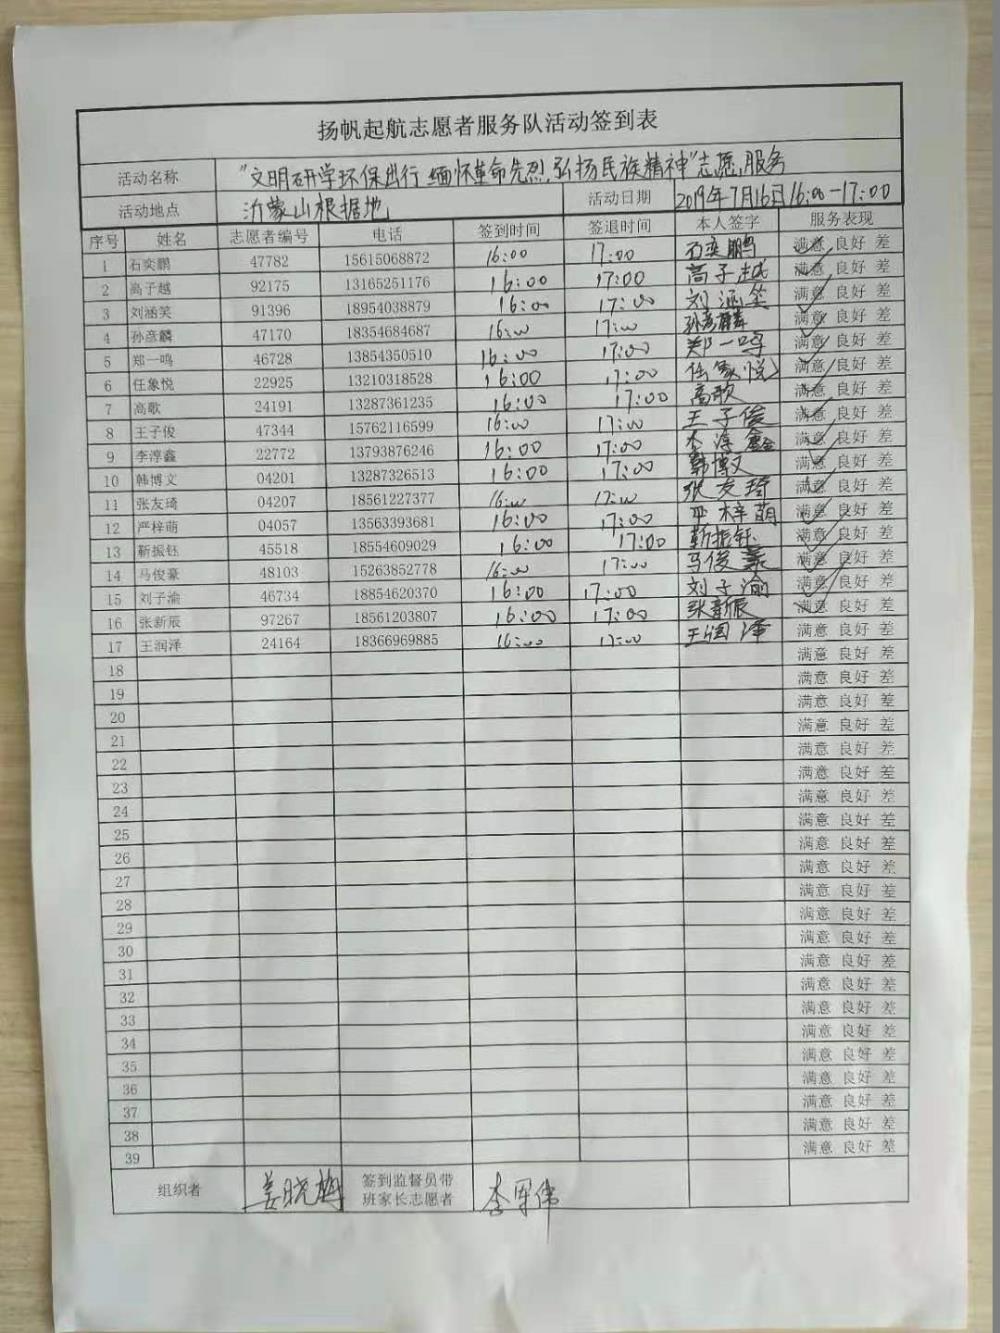 扬帆起航志愿者服务队活动签到表
活动名称 "文明研学环保出行 缅怀革命先烈,弘扬民族精神"志愿服务
活动地点 沂蒙山根据地 活动日期 2019年7月16日16:00-17:00
序号 姓名 志愿者编号 电话 签到时间 签退时间 本人签字 服务表现
1 石奕鹏 47782 15615068872 16:00 17:00 石奕鹏 满意 良好 差
2 高子越 92175 13165251176 16:00 17:00 高子越 满意 良好 差
3 刘涵笑 91396 18954038879 16:00 17:00 刘涵笑 满意 良好 差
4 孙彦麟 47170 18354684687 16:00 17:00 孙彦麟 满意 良好 差
5 郑一鸣 46728 13854350510 16:00 17:00 郑一鸣 满意 良好 差
6 任象悦 22925 13210318528 16:00 17:00 任象悦 满意 良好 差
7 高歌 24191 13287361235 16:00 17:00 高歌 满意 良好 差
8 王子俊 47344 15762116599 16:00 17:00 王子俊 满意 良好 差
9 李淳鑫 22772 13793876246 16:00 17:00 李淳鑫 满意 良好 差
10 韩博文 04201 13287326513 16:00 17:00 韩博文 满意 良好 差
11 张友琦 04207 18561227377 16:00 17:00 张友琦 满意 良好 差
12 严梓萌 04057 13563393681 16:00 17:00 严梓萌 满意 良好 差
13 靳振钰 45518 18554609029 16:00 17:00 靳振钰 满意 良好 差
14 马俊豪 48103 15263852778 16:00 17:00 马俊豪 满意 良好 差
15 刘子渝 46734 18854620370 16:00 17:00 刘子渝 满意 良好 差
16 张新辰 97267 18561203807 16:00 17:00 张新辰 满意 良好 差
17 王润泽 24164 18366969885 16:00 17:00 王润泽 满意 良好 差
18 满意 良好 差
19 满意 良好 差
20 满意 良好 差
21 满意 良好 差
22 满意 良好 差
23 满意 良好 差
24 满意 良好 差
25 满意 良好 差
26 满意 良好 差
27 满意 良好 差
28 满意 良好 差
29 满意 良好 差
30 满意 良好 差
31 满意 良好 差
32 满意 良好 差
33 满意 良好 差
34 满意 良好 差
35 满意 良好 差
36 满意 良好 差
37 满意 良好 差
38 满意 良好 差
39 满意 良好 差
组织者 姜晓梅 签到监督员带
班家长志愿者 李军伟